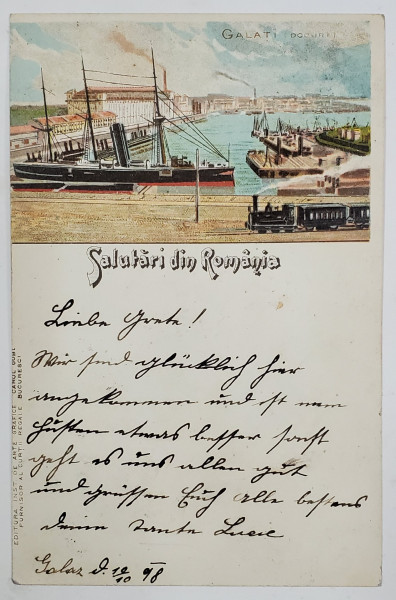 GALATI (DOCURI)
Salutări din România
Liebe Grete!
Wir sind glücklich hier
angekommen und ist mein
Husten etwas besser sonst
geht es uns allen gut
und grüssen Euch alle bestens
deine Tante Lucie
Galaz d. 12/10 98
EDITURA INST. DE ARTE GRAFICE CAROL GÖBL
FURNISOR AL CURTII REGALE BUCURESCI